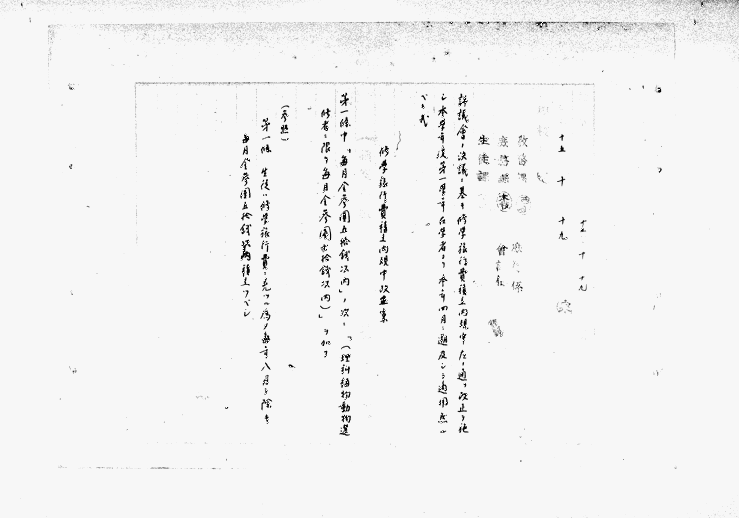 十五 十 十九
十五、十、十九
教務課
庶務課
生徒課
庶务係
會計係
評議會ノ決議ニ基キ修學旅行費積立内規中左ノ通リ改正シ
本學年度第一學年在學者ヨリ本年四月ニ遡及シテ適用
修學旅行費積立内規中改正案
第一條中「毎月金参圓五拾錢以内」ノ次ニ「(理科植物動物選
修者ニ限リ毎月金参圓 拾錢以内)」ヲ加フ
(参照)
第一條 生徒ハ修學旅行費ニ充ツル為メ毎年八月ヲ除キ
毎月金参圓五拾錢以内積立ツベシ